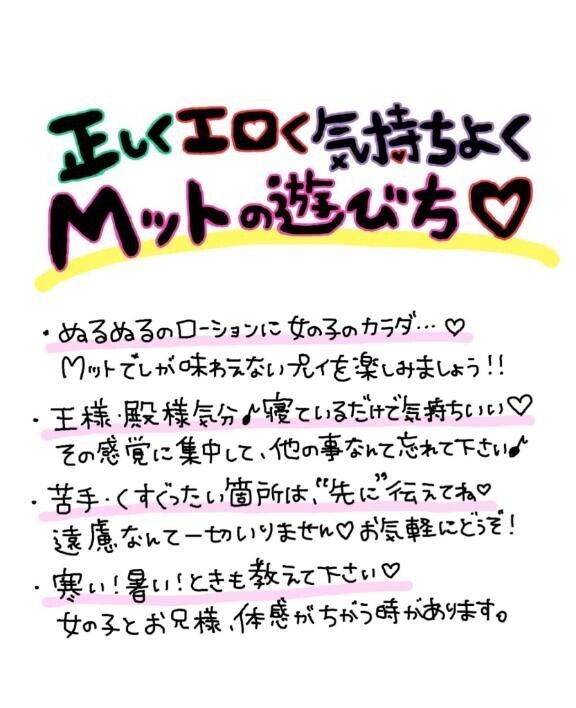 正しくエロく気持ちよく
Mットの遊びち♡
・ぬるぬるのローションに女の子のカラダ…♡
Mットでしが味わえないプレイを楽しみましょう!!
・王様・殿様気分♪寝ているだけで気持ちいい♡
その感覚に集中して、他の事なんて忘れて下さい♪
・苦手・くすぐったい箇所は、“先に”伝えてね♡
遠慮なんて一切いりません♡お気軽にどうぞ!
・寒い!暑い!ときも教えて下さい♡
女の子とお兄様、体感がちがう時があります。